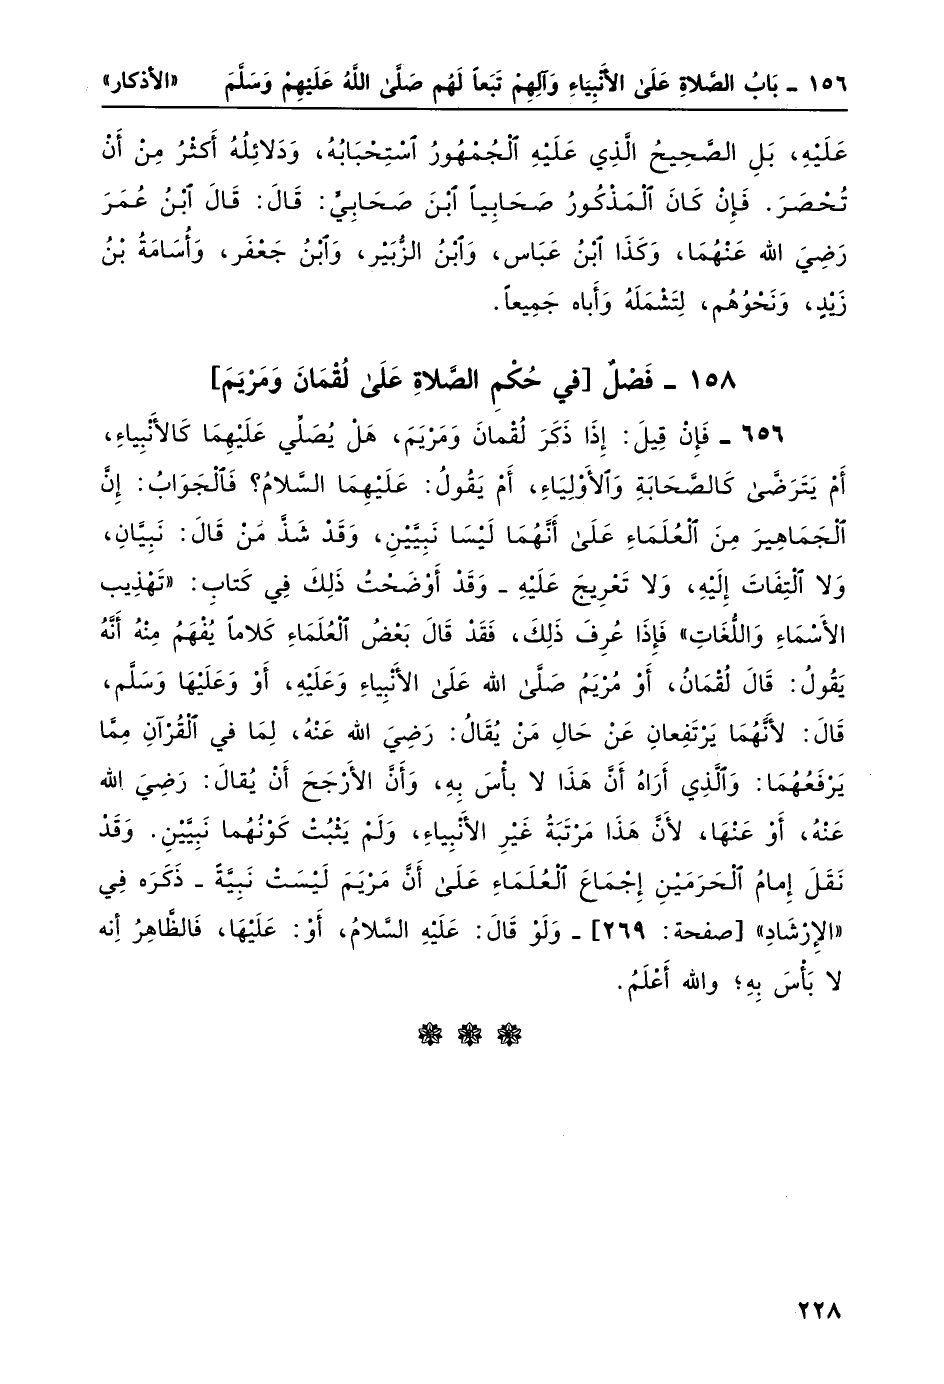 ١٥٦ ـ بَابُ الصَّلاةِ عَلَىٰ الأَنْبِيَاءِ وَآلِهِمْ تَبَعاً لَهُم صَلَّىٰ اللَّهُ عَلَيْهِمْ وَسَلَّمَ «الأذكار»
عَلَيْهِ، بَلِ الصَّحِيحُ الَّذِي عَلَيْهِ ٱلْجُمْهُورُ ٱسْتِحْبَابُهُ، وَدَلائِلُهُ أَكثْرُ مِنْ أَنْ
تُحْصَرَ. فَإِنْ كَانَ ٱلْمَذْكُورُ صَحَابِياً ٱبْنَ صَحَابِيٍّ: قَالَ: قَالَ ٱبْنُ عُمَرَ
رَضِيَ الله عَنْهُمَا، وَكَذَا ٱبْنُ عَبَاس، وَٱبْنُ الزُّبَيْر، وَٱبْنُ جَعْفَر، وَأُسَامَةُ بْنُ
زَيْدٍ، وَنَحْوُهُم، لِتَشْمَلَهُ وَأَباه جَمِيعاً.
١٥٨ ـ فَصْلٌ [في حُكْمِ الصَّلاةِ عَلَىٰ لُقْمَانَ وَمَرْيَمَ]
٦٥٦ ـ فَإِنْ قِيلَ: إِذَا ذَكَرَ لُقْمانَ وَمَرْيَمَ، هَلْ يُصَلِّي عَلَيْهِمَا كَالأَنْبِياءِ،
أَمْ يَتَرَضَّىٰ كَالصَّحَابَةِ وَٱلأَوْلِيَاءِ، أَمْ يَقُولُ: عَلَيْهِمَا السَّلامُ؟ فَٱلْجَوَابُ: إِنَّ
ٱلْجَمَاهِيرَ مِنَ ٱلْعُلَمَاءِ عَلَىٰ أَنَّهُمَا لَيْسَا نَبِيَّيْنِ، وَقَدْ شَذَّ مَنْ قَالَ: نَبِيَّانِ،
وَلا ٱلْتِفَاتَ إِلَيْهِ، وَلا تَعْرِيجَ عَلَيْهِ ـ وَقَدْ أَوْضَحْتُ ذَلِكَ فِي كَتابِ: «تَهْذِيب
الأَسْمَاءِ وَاللُّغَاتِ» فَإِذَا عُرِفَ ذَلِكَ، فَقَدْ قَالَ بَعْضُ ٱلْعُلَمَاءِ كَلاماً يُفْهَمُ مِنْهُ أَنَّهُ
يَقُولُ: قَالَ لُقْمَانُ، أَوْ مُرْيَمُ صَلَّىٰ الله عَلَىٰ الأَنْبِياءِ وَعَلَيْهِ، أَوْ وَعَلَيْهَا وَسَلَّم،
قَالَ: لأَنَّهُمَا يَرْتَفِعانِ عَنْ حَالِ مَنْ يُقَالُ: رَضِيَ الله عَنْهُ، لِمَا في ٱلْقُرْآنِ مِمَّا
يَرْفَعُهُمَا: وَٱلَّذِي أَرَاهُ أَنَّ هَذَا لا بأْسَ بِهِ، وَأَنَّ الأَرْجَحَ أَنْ يُقالَ: رَضِيَ الله
عَنْهُ، أَوْ عَنْهَا، لأَنَّ هَذَا مَرْتَبَةُ غَيْرِ الأَنْبِياءِ، وَلَمْ يَثْبُتْ كَوْنُهُما نَبِيَّيْنِ. وَقَدْ
نَقَلَ إِمامُ ٱلْحَرَمَيْنِ إِجْمَاعَ ٱلْعُلَمَاءِ عَلَىٰ أَنَّ مَرْيَمَ لَيْسَتْ نَبِيَّةً ـ ذَكَرَه فِي
«الإِرْشَادِ» [صفحة: ٢٦٩] ـ وَلَوْ قَالَ: عَلَيْهِ السَّلامُ، أَوْ: عَلَيْهَا، فَالظَّاهِرُ أَنِه
لا بَأْسَ بِهِ؛ والله أَعْلَمُ.
٢٢٨